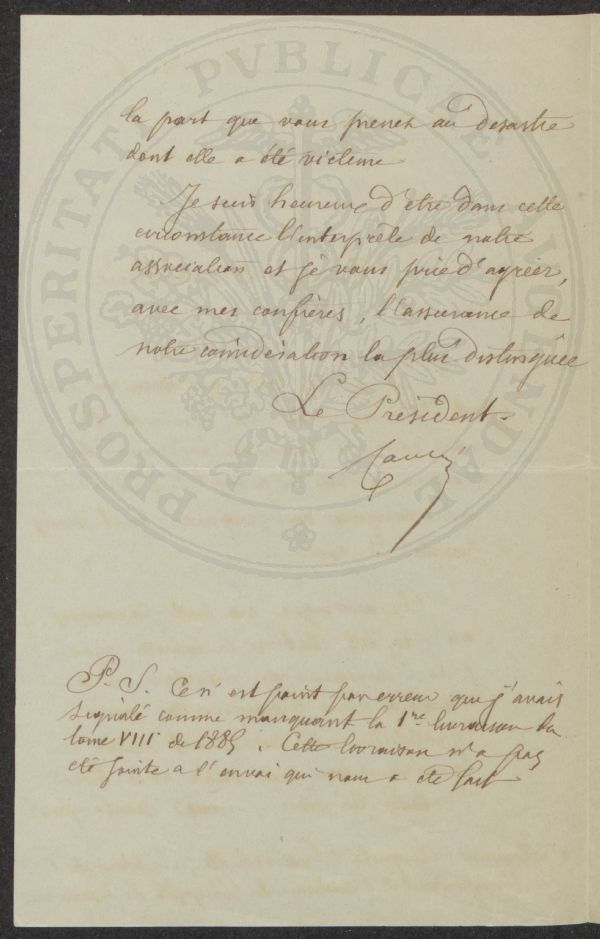 PROSPERITATI PVBLICAE AVGENDAE
la part que vous prenez au desastre
dont elle a été victime
Je suis heureux d'etre dans cette
circonstance l'interprète de notre
association et je vous prie d'agréer,
avec mes confrères, l'assurance de
notre considération la plus distinguée
Le Président
P. S. Ce n'est point par erreur que j'avais
signalé comme manquant la 1re livraison du
tome VIII de 1885. Cette livraison n'a pas
été jointe a l'envoi qui nous a été fait